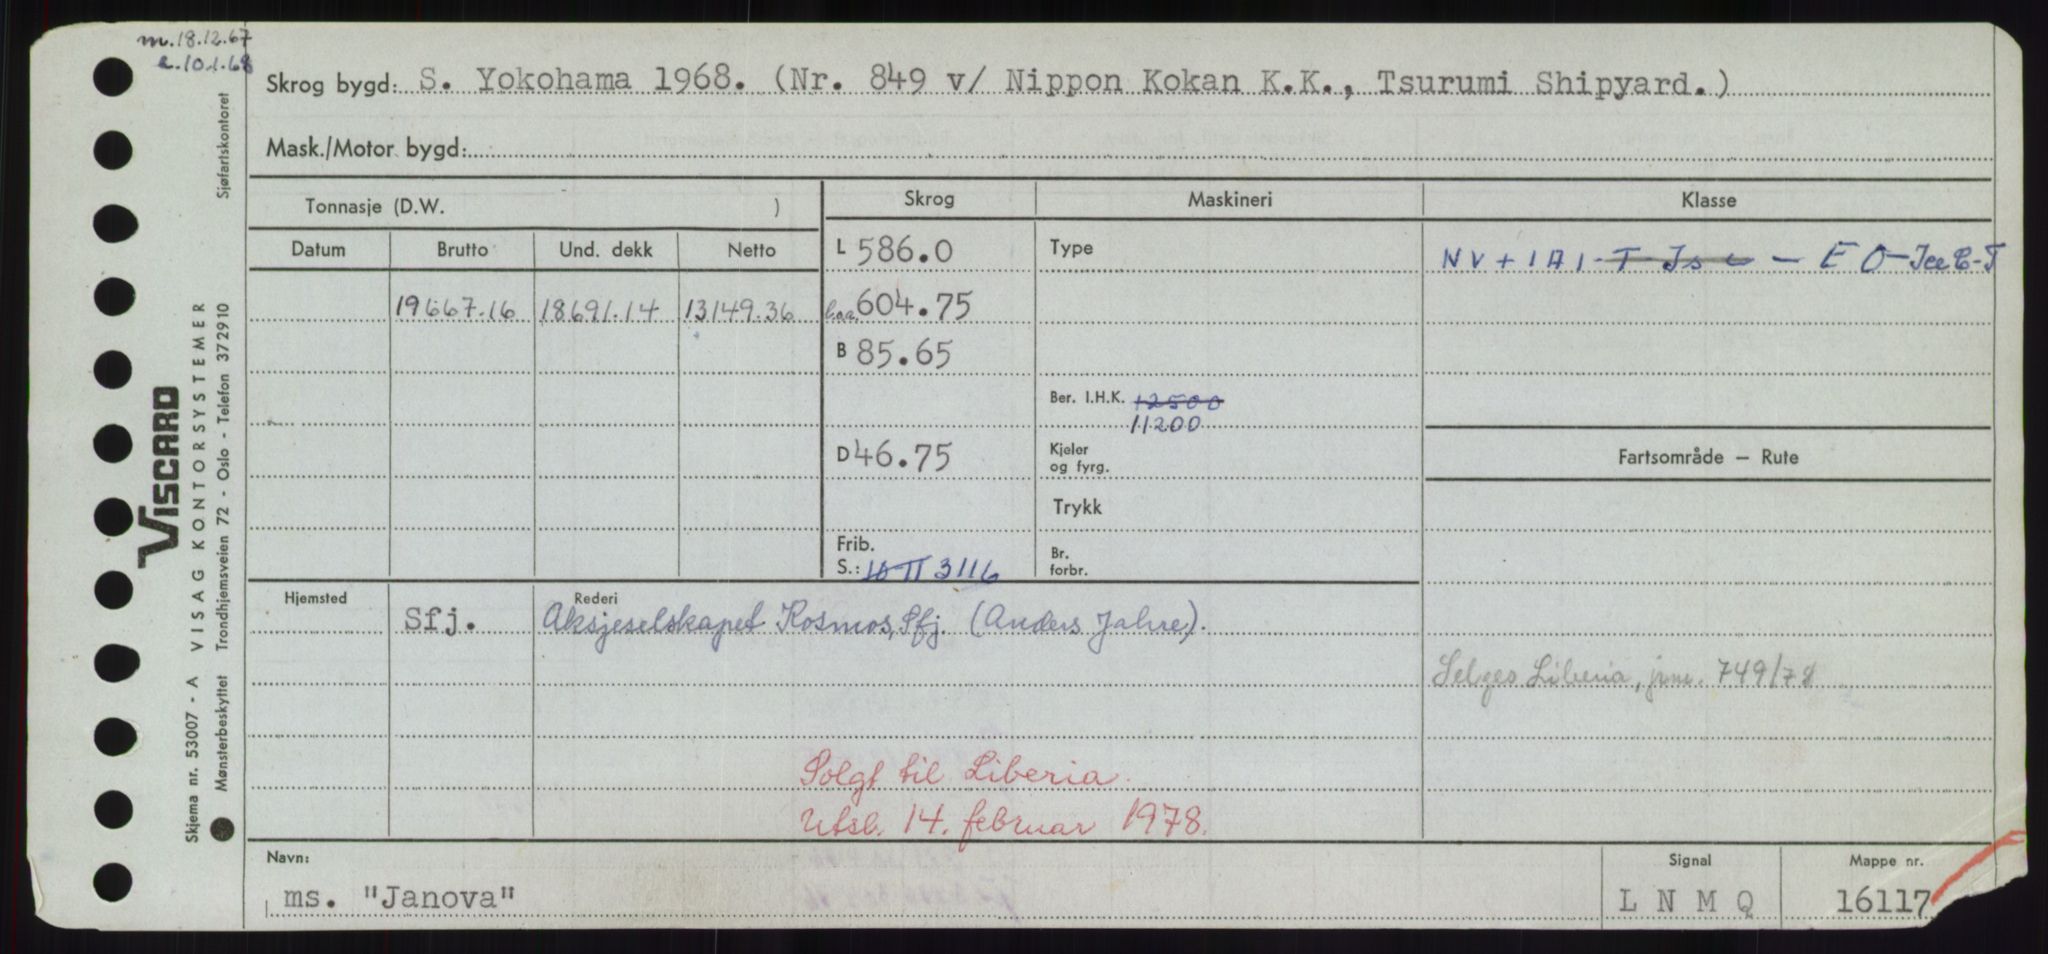 m.18.12.67
a.10.1.68
Skrog bygd: S. Yokohama 1968. (Nr. 849 v/ Nippon Kokan K.K., Tsurumi Shipyard.)
Mask./Motor bygd:
Tonnasje (D.W. )
Skrog
Maskineri
Klasse
Datum
Brutto
Und. dekk
Netto
L 586.0
Type
NV+1A1-T-Isc - EO-Ice C-T
19667.16
18691.14
13149.36
l.o.a. 604.75
B 85.65
Ber. I.H.K. 12500
11200
D 46.75
Kjeler
og fyrg.
Fartsområde — Rute
Trykk
Frib.
S.: 10 TT 3116
Br.
forbr.
Hjemsted
Rederi
Sfj.
Aksjeselskapet Kosmos, Sfj. (Anders Jahre).
Selges Liberia, jnr. 749/78
Solgt til Liberia.
Utsl. 14. februar 1978.
Navn:
ms. "Janova"
Signal
L N M Q
Mappe nr.
16117
Sjøfartskontoret
VISCARD
VISAG KONTORSYSTEMER
Trondhjemsveien 72 - Oslo - Telefon 372910
Skjema nr. 53007 - A
Mønsterbeskyttet